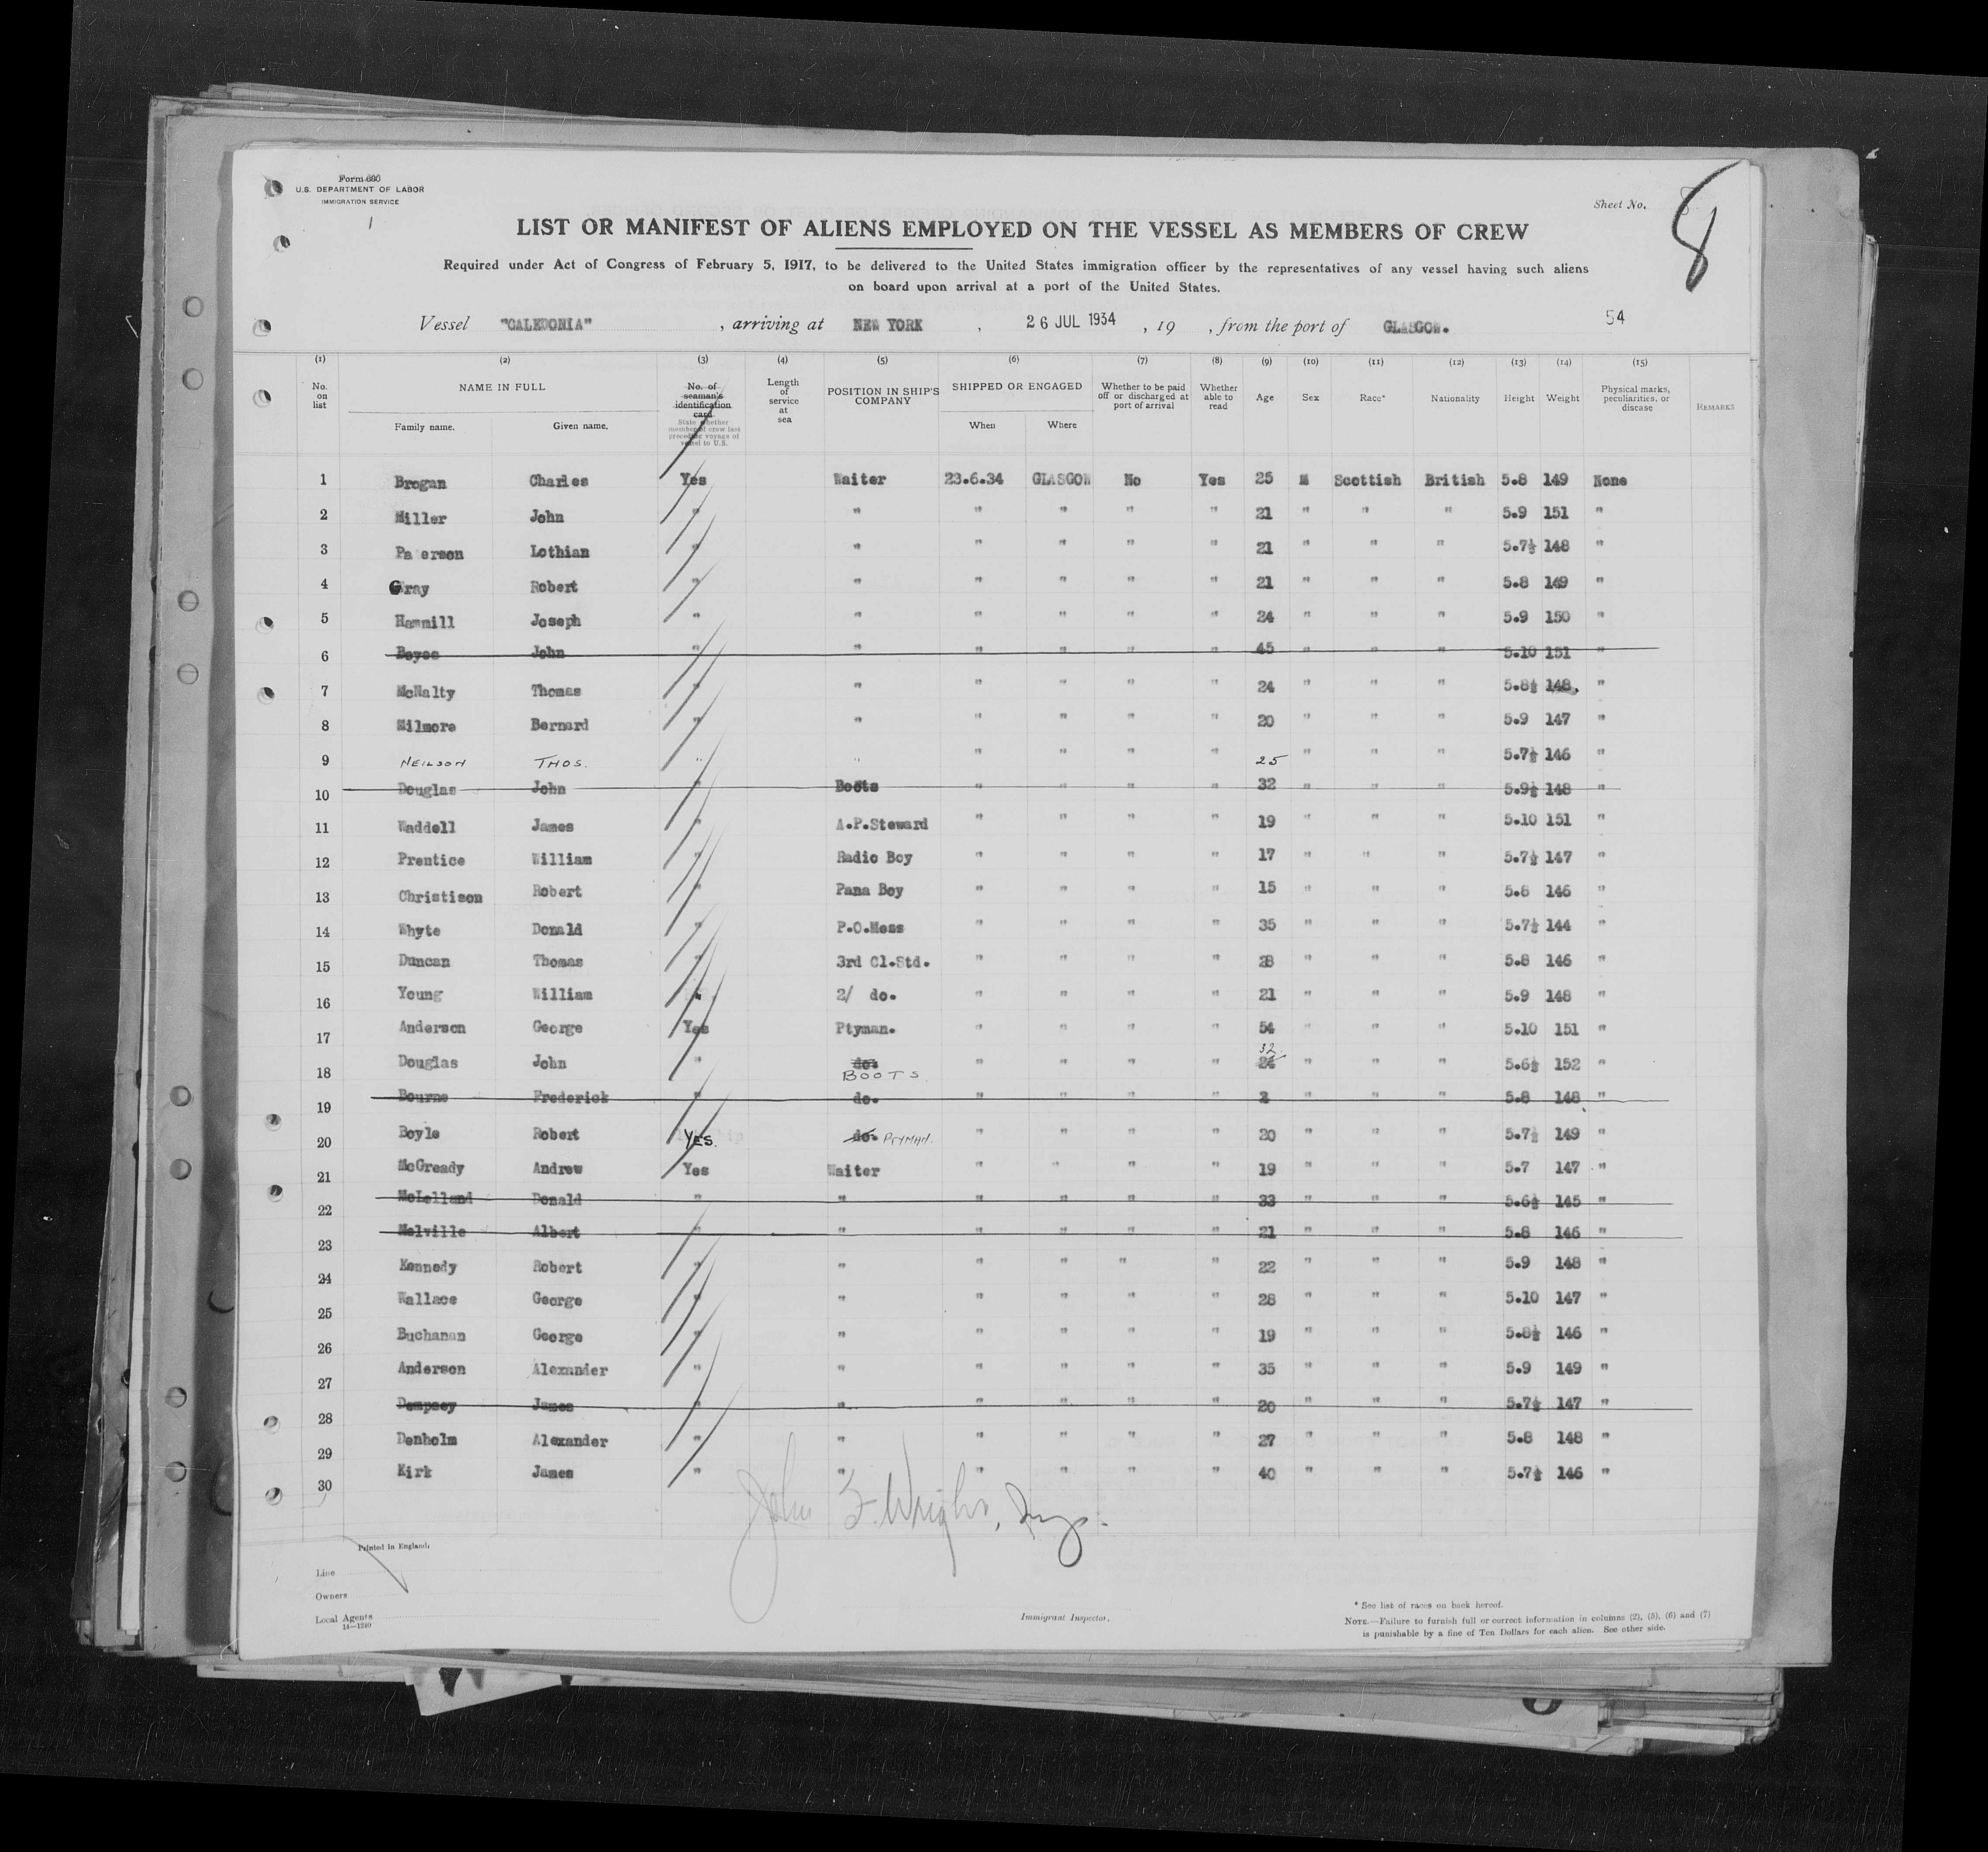 Form 686
U.S. DEPARTMENT OF LABOR
IMMIGRATION SERVICE
Sheet No. 8
8
LIST OR MANIFEST OF ALIENS EMPLOYED ON THE VESSEL AS MEMBERS OF CREW
Required under Act of Congress of February 5, 1917, to be delivered to the United States immigration officer by the representatives of any vessel having such aliens
on board upon arrival at a port of the United States.
Vessel "CALEDONIA" , arriving at NEW YORK , 26 JUL 1934 , 19 , from the port of GLASGOW. 54
(1) (2) (3) (4) (5) (6) (7) (8) (9) (10) (11) (12) (13) (14) (15)
No. on list NAME IN FULL Family name. Given name. No. of seaman's identification card State whether member of crew last preceding voyage of vessel to U.S. Length of service at sea POSITION IN SHIP'S COMPANY SHIPPED OR ENGAGED When Where Whether to be paid off or discharged at port of arrival Whether able to read Age Sex Race* Nationality Height Weight Physical marks, peculiarities, or disease REMARKS
1 Brogan Charles Yes Waiter 23.6.34 GLASGOW No Yes 25 M Scottish British 5.8 149 None
2 Miller John " " " " " " 21 " " " 5.9 151 "
3 Pa erson Lothian " " " " " " 21 " " " 5.7½ 148 "
4 Gray Robert " " " " " " 21 " " " 5.8 149 "
5 Hammill Joseph " " " " " " 24 " " " 5.9 150 "
6 Boyes John " " " " " " 45 " " " 5.10 151 "
7 McNalty Thomas " " " " " " 24 " " " 5.8½ 148. "
8 Milmore Bernard " " " " " " 20 " " " 5.9 147 "
9 NEILSON THOS. " " " " " " 25 " " " 5.7½ 146 "
10 Douglas John " Boots " " " " 32 " " " 5.9½ 148 "
11 Waddell James " A.P.Steward " " " " 19 " " " 5.10 151 "
12 Prentice William " Radio Boy " " " " 17 " " " 5.7½ 147 "
13 Christison Robert " Pana Boy " " " " 15 " " " 5.8 146 "
14 Whyte Donald " P.O.Mess " " " " 35 " " " 5.7½ 144 "
15 Duncan Thomas " 3rd Cl.Std. " " " " 28 " " " 5.8 146 "
16 Young William " 2/ do. " " " " 21 " " " 5.9 148 "
17 Anderson George Yes Ptyman. " " " " 54 " " " 5.10 151 "
18 Douglas John " do. BOOTS. " " " " 32 24 " " " 5.6½ 152 "
19 Bourne Frederick " do. " " " " 2 " " " 5.8 148 "
20 Boyle Robert YES. do. PTYMAN. " " " " 20 " " " 5.7½ 149 "
21 McGready Andrew Yes Waiter " " " " 19 " " " 5.7 147 "
22 McLelland Donald " " " " " " 33 " " " 5.6½ 145 "
23 Melville Albert " " " " " " 21 " " " 5.8 146 "
24 Kennedy Robert " " " " " " 22 " " " 5.9 148 "
25 Wallace George " " " " " " 28 " " " 5.10 147 "
26 Buchanan George " " " " " " 19 " " " 5.8½ 146 "
27 Anderson Alexander " " " " " " 35 " " " 5.9 149 "
28 Dempsey James " " " " " " 20 " " " 5.7½ 147 "
29 Denholm Alexander " " " " " " 27 " " " 5.8 148 "
30 Kirk James " " " " " " 40 " " " 5.7½ 146 "
John F. Wright, Insp.
Printed in England.
Line
Owners
Local Agents
14—1240
Immigrant Inspector.
* See list of races on back hereof.
NOTE.—Failure to furnish full or correct information in columns (2), (5), (6) and (7)
is punishable by a fine of Ten Dollars for each alien. See other side.